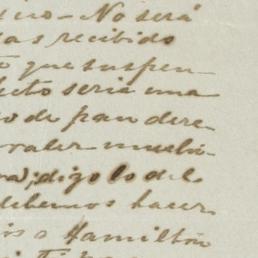 ero - No será
as recibido
to que suspen-
ecto seria una
o de pan dere-
valer mucho
na); digo lo del
debemos hacer
is a Hamilton